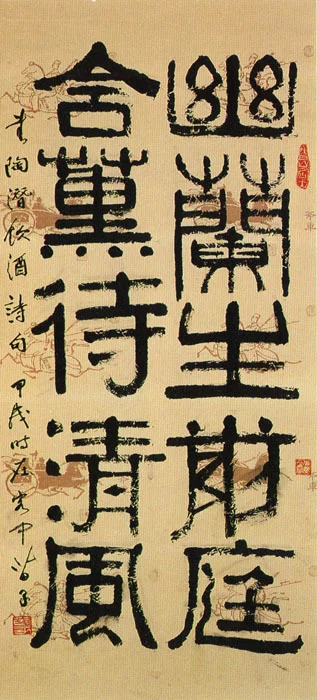 幽蘭生前庭
含薰待清風
書陶潛飲酒詩句 甲戌時居 中 苗子